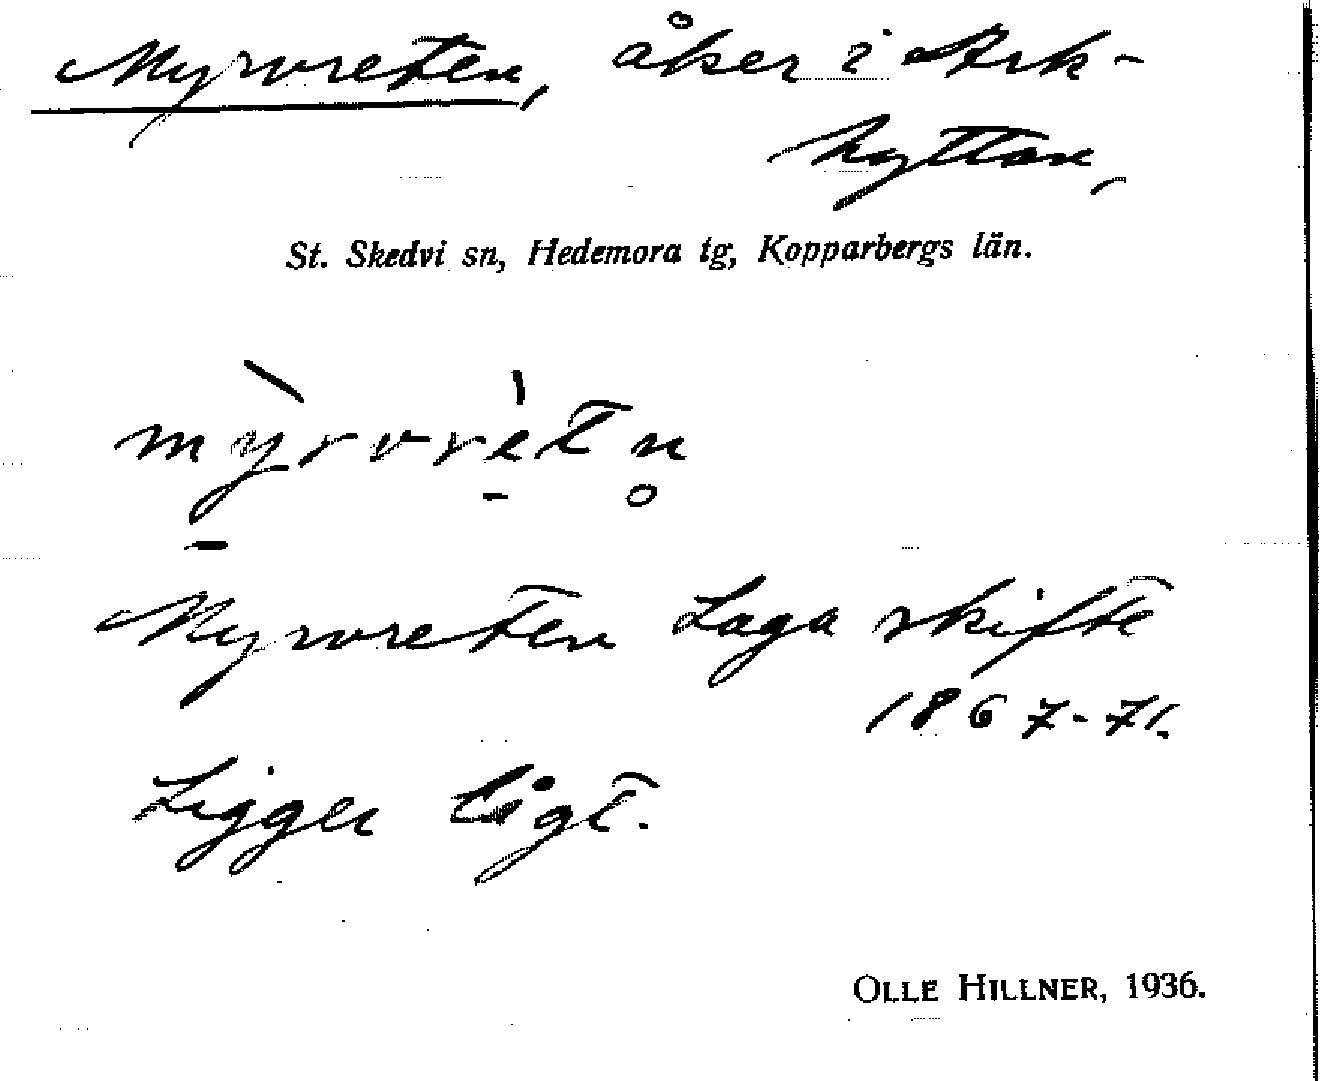 Myrvreten, åker i Ark-
hyttan,
St. Skedvi sn, Hedemora tg, Kopparbergs län.
mỳrvrètn̥
Myrvreten Laga skifte
1867-71.
Ligger lågt.
OLLE HILLNER, 1936.